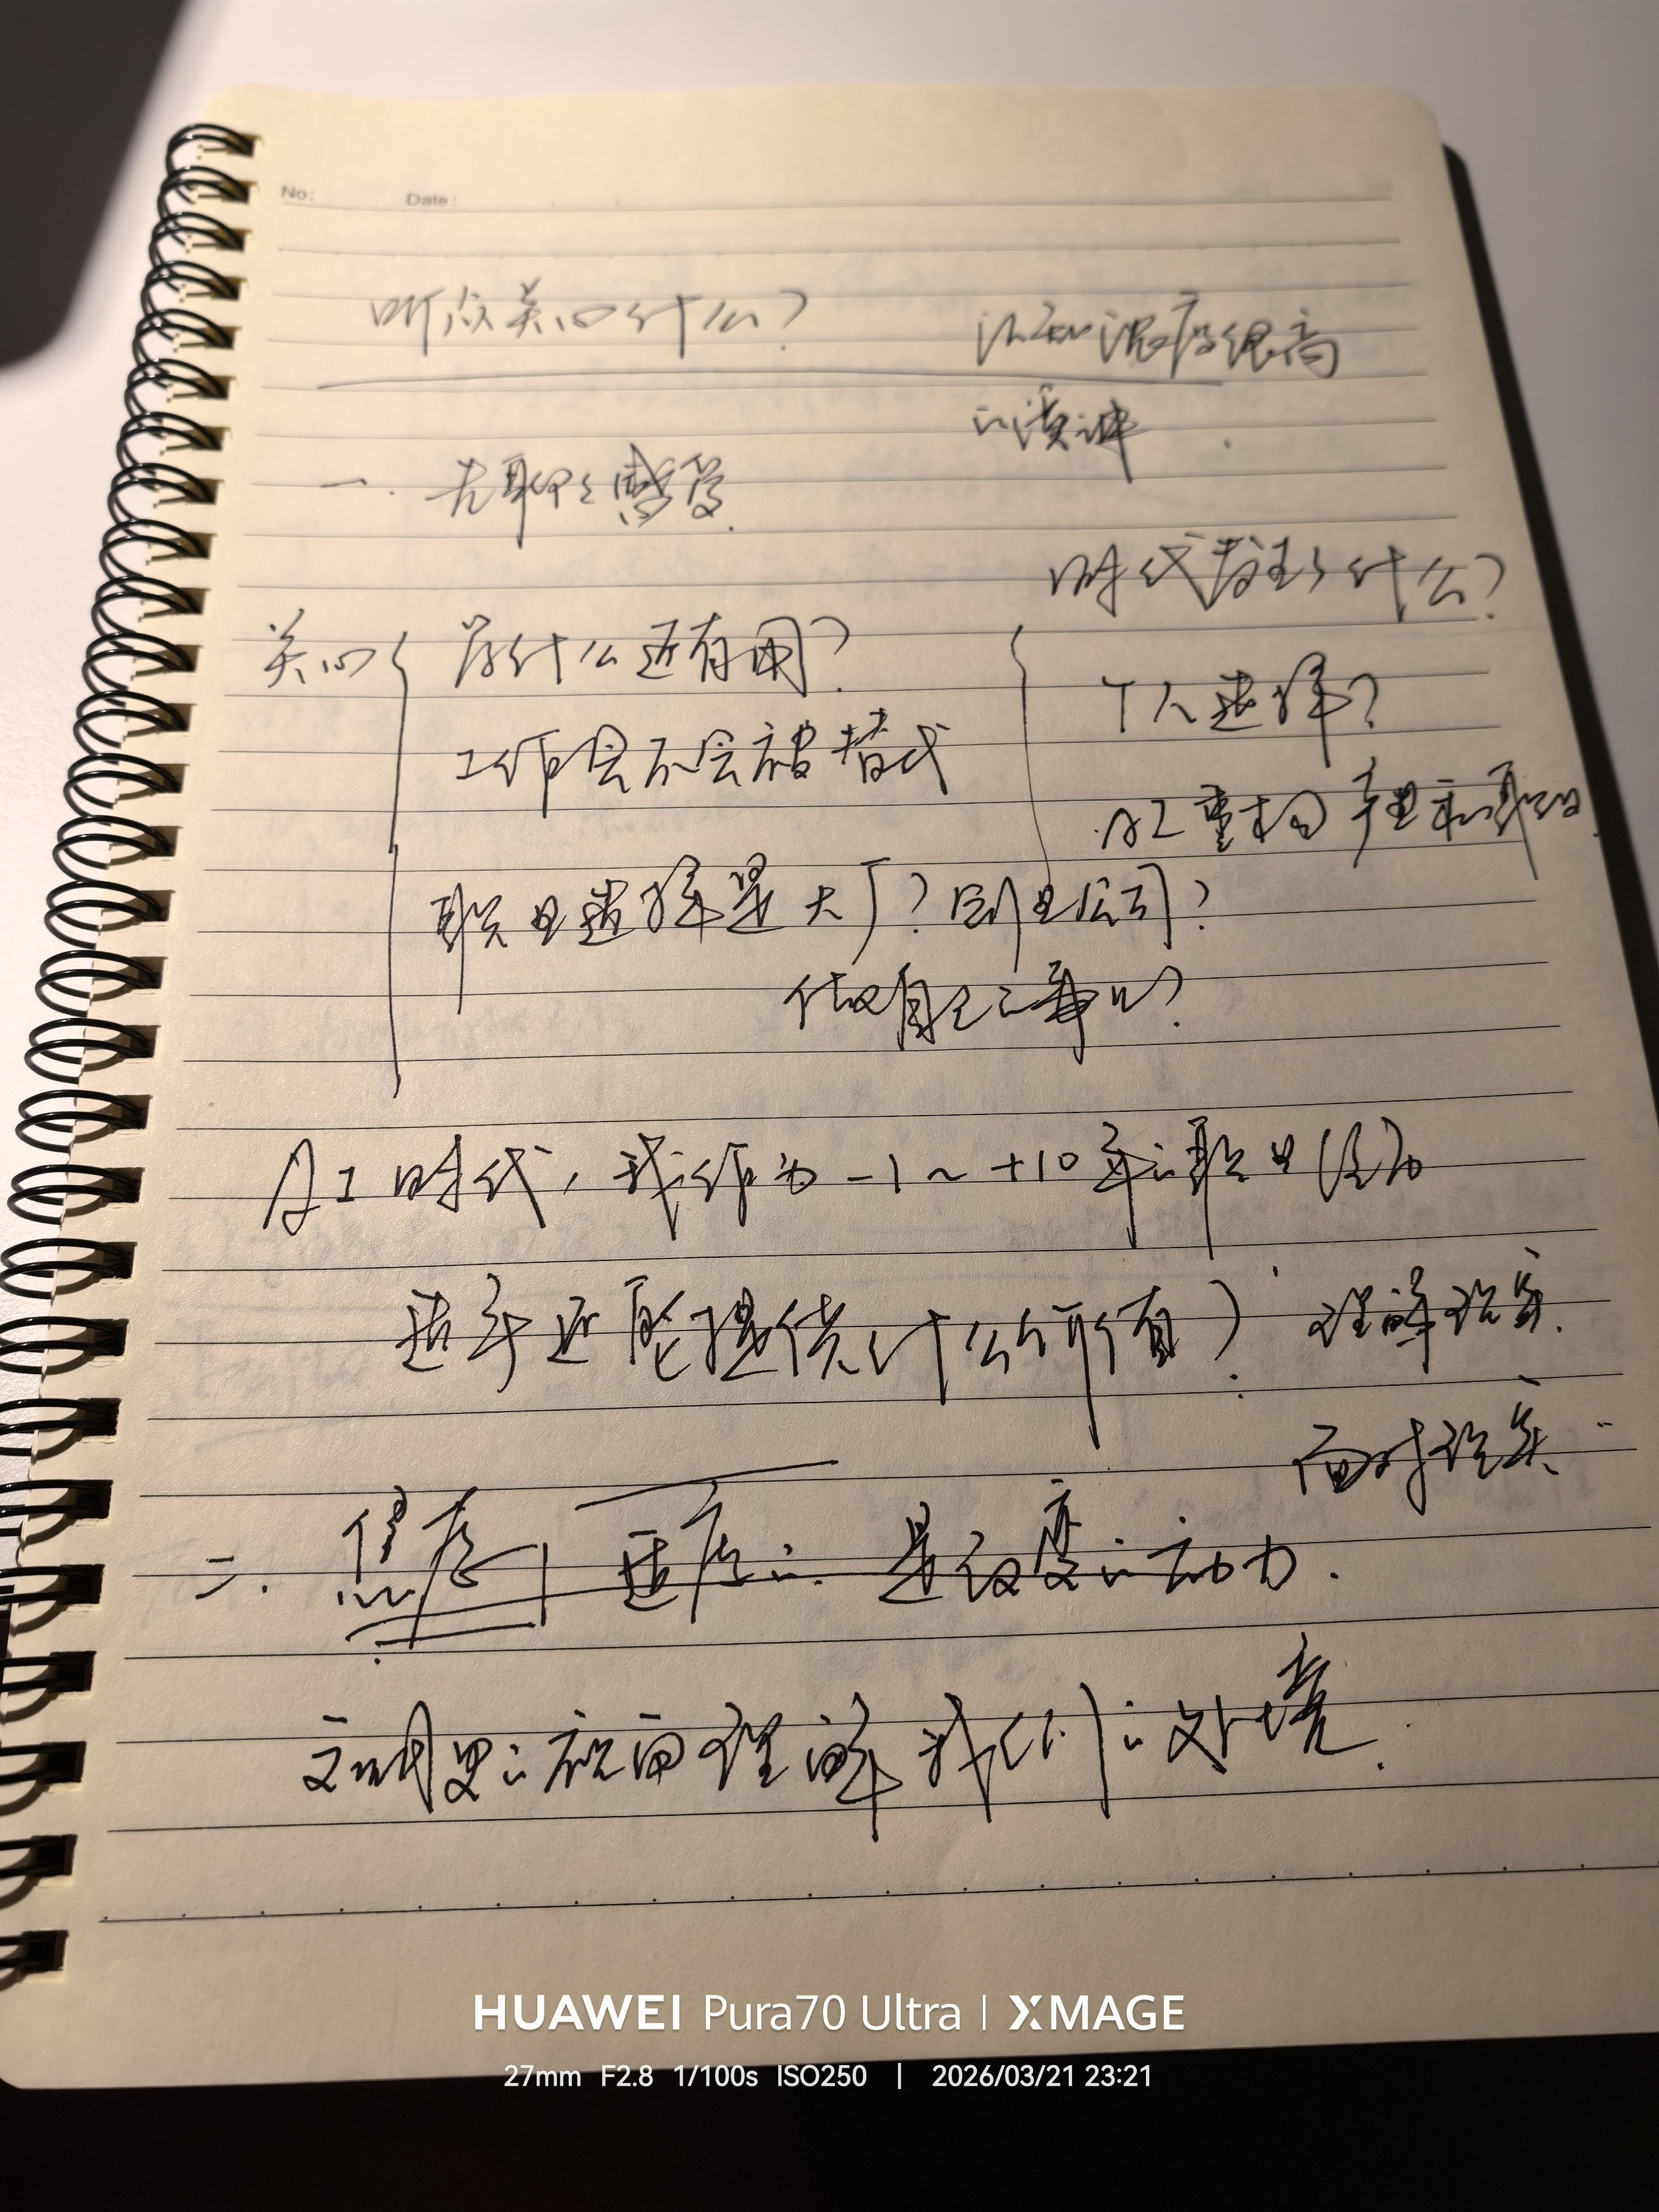 No: Date:
听众关心什么?
认知浓度很高
的演讲.
一. 先聊聊感受.
时代发生了什么?
关心 学什么还有用?
个人选择?
工作会不会被替代
AI重构产业和职业.
职业选择是大厂? 创业公司?
做自己的事儿?
AI时代, 我作为 -1 ~ +10 年的职业
还能提供什么价值? 理解现实.
面对现实.
二. 焦虑 适度的. 是改变的动力.
文明史的 理解我们的处境.
HUAWEI Pura70 Ultra | XMAGE
27mm F2.8 1/100s ISO250 | 2026/03/21 23:21